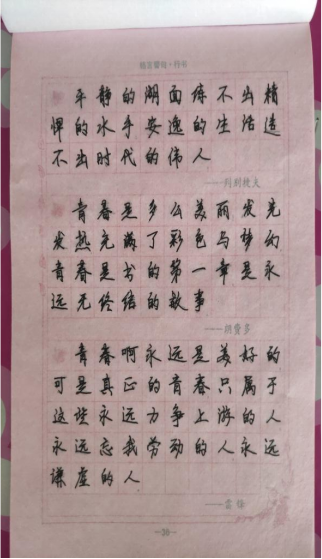 格言警句·行书
平静的湖面练不出精
悍的水手安逸的生活造
不出时代的伟人
——列别捷夫
青春是多么美丽发光
发热充满了彩色与梦幻
青春是书的第一章是永
远无终结的故事
——朗费多
青春啊永远是美好的
可是真正的青春只属于
这些永远力争上游的人
永远忘我劳动的人永远
谦虚的人
——雷锋
—38—